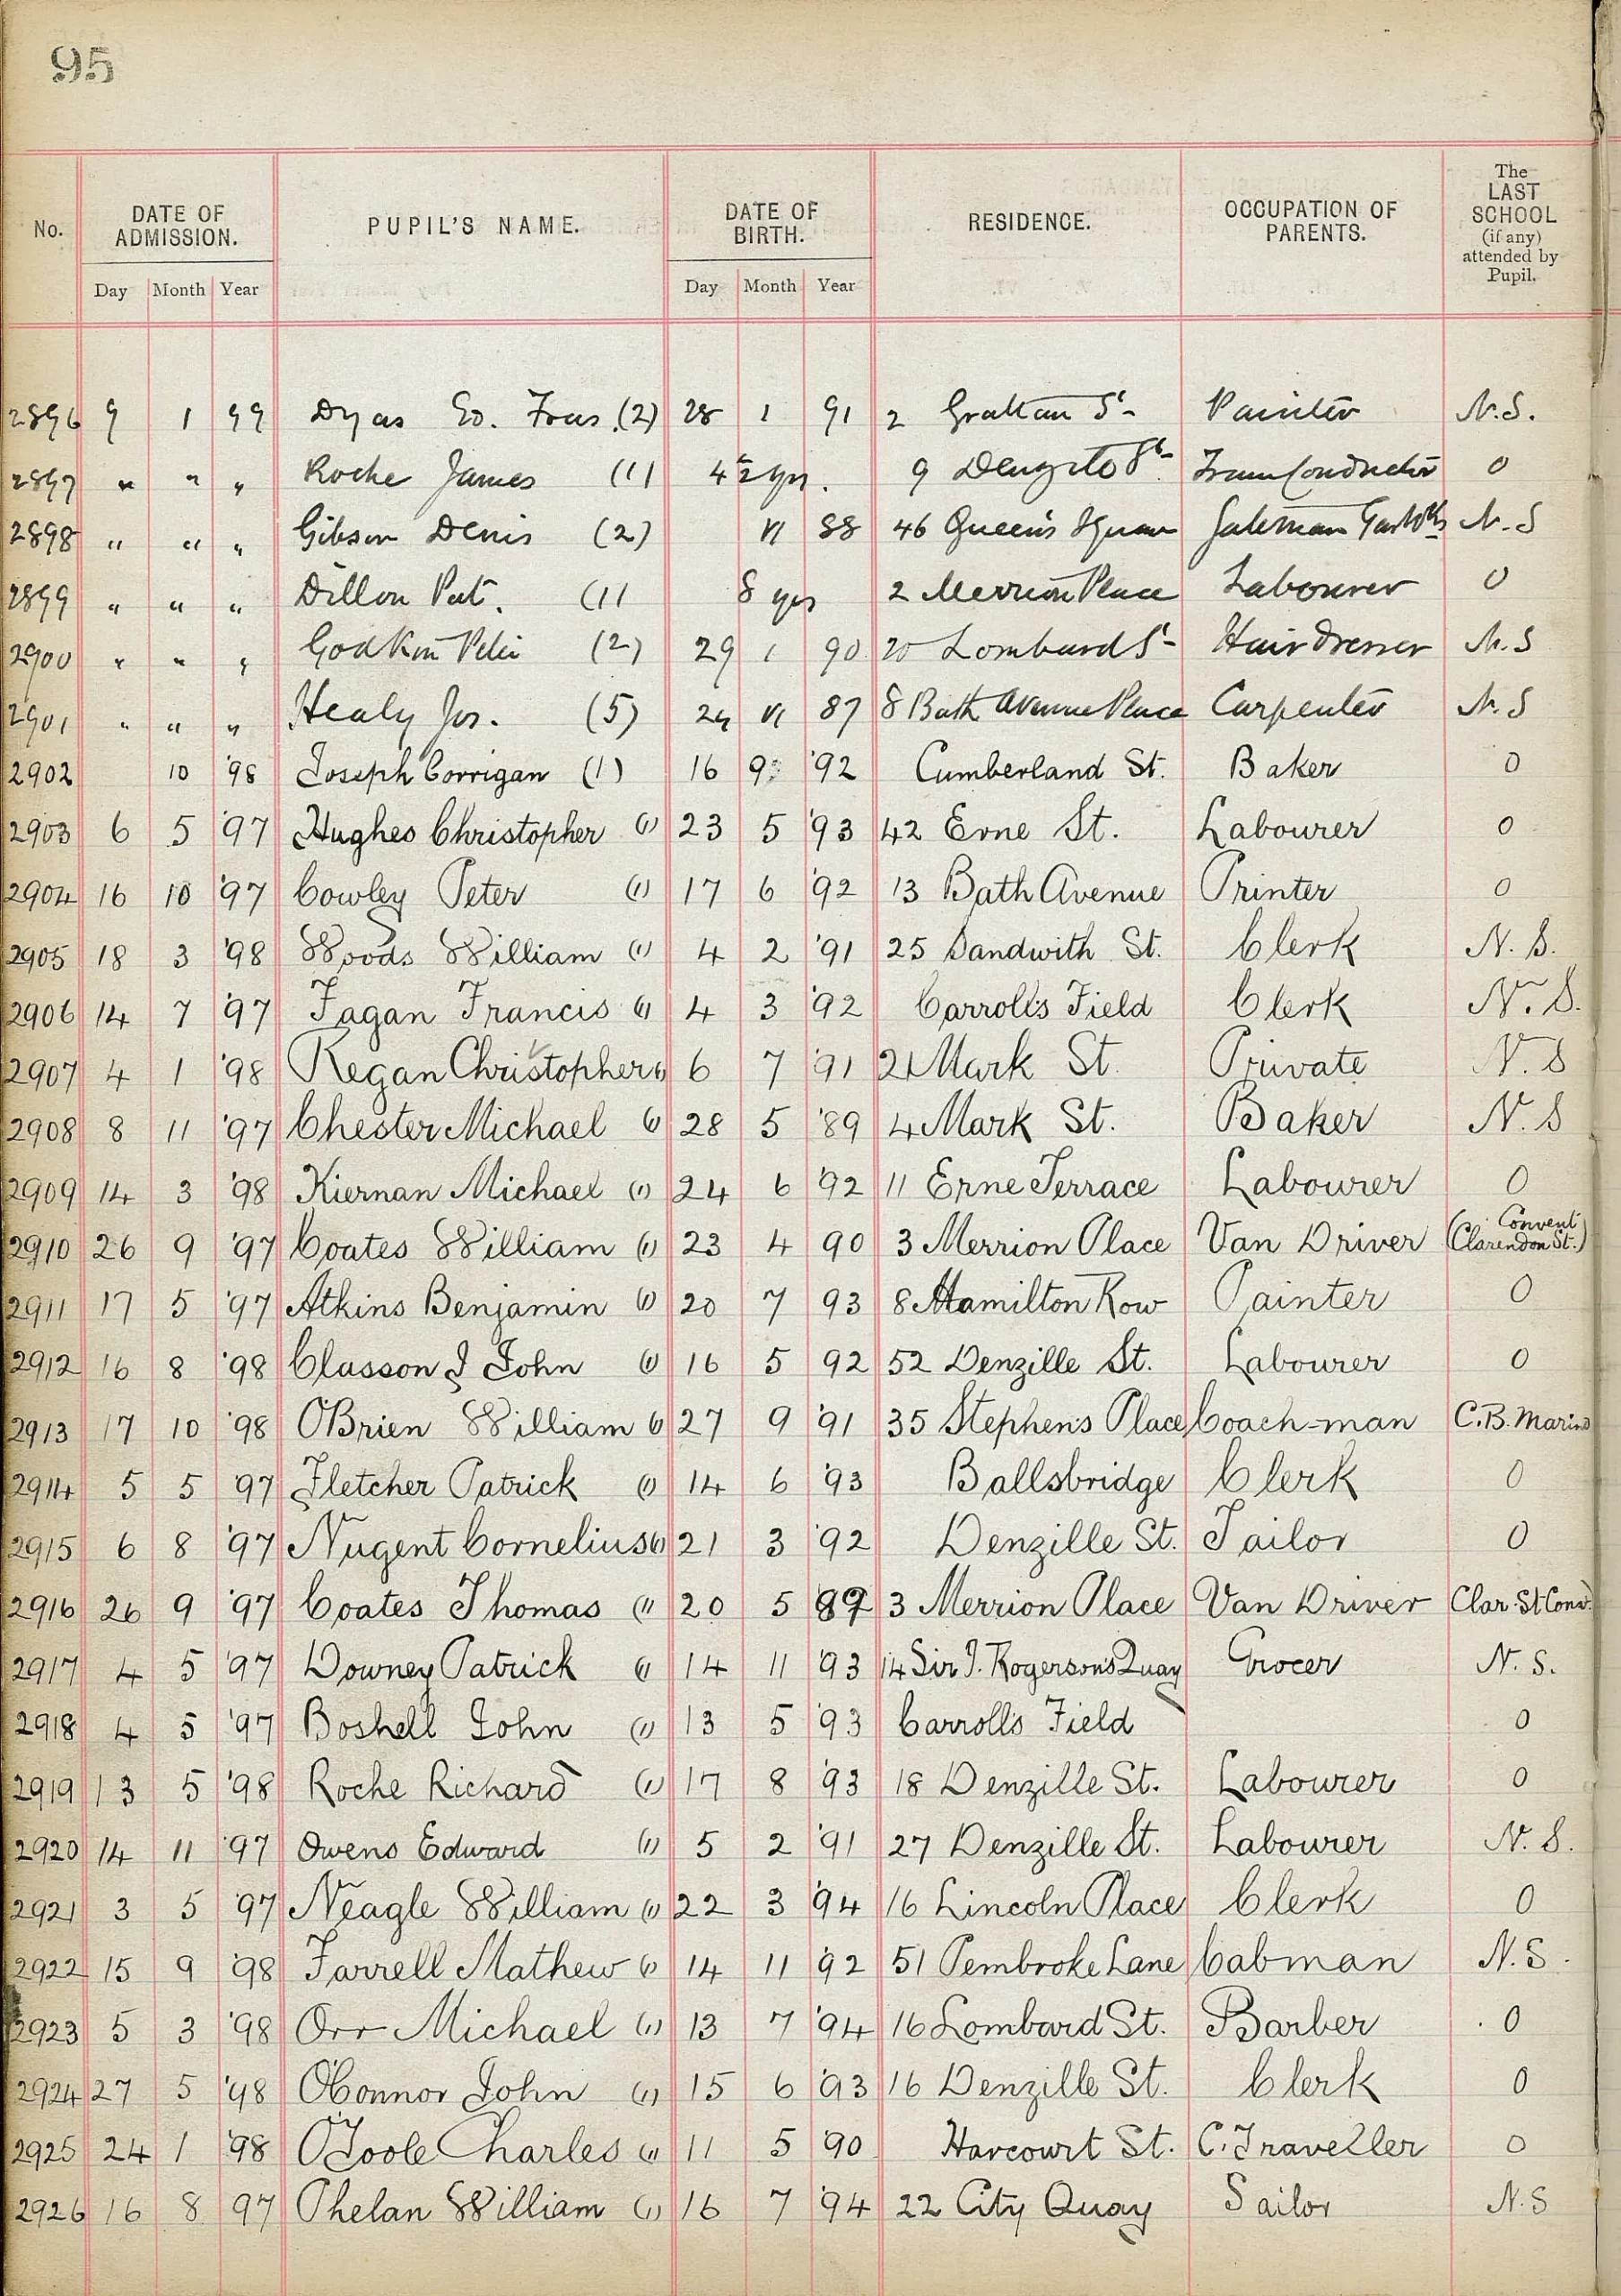 95
No. DATE OF ADMISSION. PUPIL'S NAME. DATE OF BIRTH. RESIDENCE. OCCUPATION OF PARENTS. The LAST SCHOOL (if any) attended by Pupil.
Day Month Year Day Month Year
2896 9 1 99 Dyas Ed. Fras. (2) 28 1 91 2 Grattan St Painter N.S.
2897 " " " Roche James (1) 4 1/2 yrs. 9 Denzille St Tram Conductor 0
2898 " " " Gibson Denis (2) VI 88 46 Queen's Square N.S
2899 " " " Dillon Pat. (1) 8 yrs 2 Merrion Place Labourer 0
2900 " " " Godkin Peter (2) 29 1 90 20 Lombard St Hair Dresser N.S
2901 " " " Healy Jos. (5) 24 VI 87 8 Bath Avenue Place Carpenter N.S
2902 10 '98 Joseph Corrigan (1) 16 9 '92 Cumberland St. Baker 0
2903 6 5 '97 Hughes Christopher (1) 23 5 '93 42 Erne St. Labourer 0
2904 16 10 '97 Cowley Peter (1) 17 6 '92 13 Bath Avenue Printer 0
2905 18 3 '98 Woods William (1) 4 2 '91 25 Sandwith St. Clerk N.S.
2906 14 7 '97 Fagan Francis (1) 4 3 '92 Carroll's Field Clerk N.S.
2907 4 1 '98 Regan Christopher (1) 6 7 '91 21 Mark St. Private N.S
2908 8 11 '97 Chester Michael (1) 28 5 '89 4 Mark St. Baker N.S
2909 14 3 '98 Kiernan Michael (1) 24 6 '92 11 Erne Terrace Labourer 0
2910 26 9 '97 Coates William (1) 23 4 90 3 Merrion Place Van Driver (Convent Clarendon St.)
2911 17 5 '97 Atkins Benjamin (1) 20 7 93 8 Hamilton Row Painter 0
2912 16 8 '98 Classon J John (1) 16 5 92 52 Denzille St. Labourer 0
2913 17 10 '98 O'Brien William (1) 27 9 '91 35 Stephen's Place Coach-man C.B. Marino
2914 5 5 '97 Fletcher Patrick (1) 14 6 '93 Ballsbridge Clerk 0
2915 6 8 '97 Nugent Cornelius (1) 21 3 '92 Denzille St. Tailor 0
2916 26 9 '97 Coates Thomas (1) 20 5 89 3 Merrion Place Van Driver Clar. St Conv.
2917 4 5 '97 Downey Patrick (1) 14 11 '93 14 Sir J. Rogerson's Quay Grocer N.S.
2918 4 5 '97 Boshell John (1) 13 5 '93 Carroll's Field 0
2919 13 5 '98 Roche Richard (1) 17 8 '93 18 Denzille St. Labourer 0
2920 14 11 '97 Owens Edward (1) 5 2 '91 27 Denzille St. Labourer N.S.
2921 3 5 '97 Neagle William (1) 22 3 '94 16 Lincoln Place Clerk 0
2922 15 9 '98 Farrell Mathew (1) 14 11 '92 51 Pembroke Lane Cabman N.S.
2923 5 3 '98 Orr Michael (1) 13 7 '94 16 Lombard St. Barber 0
2924 27 5 '98 O'Connor John (1) 15 6 '93 16 Denzille St. Clerk 0
2925 24 1 '98 O'Toole Charles (1) 11 5 '90 Harcourt St. C. Traveller 0
2926 16 8 97 Phelan William (1) 16 7 '94 22 City Quay Sailor N.S